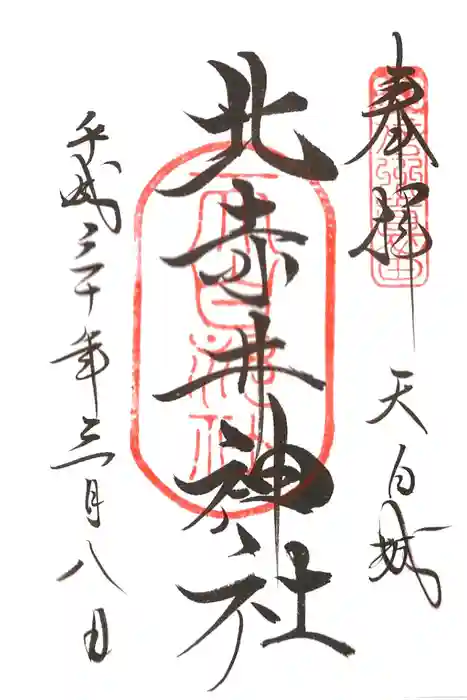 奉拝 天白城
北赤井神社
平成三十年三月八日